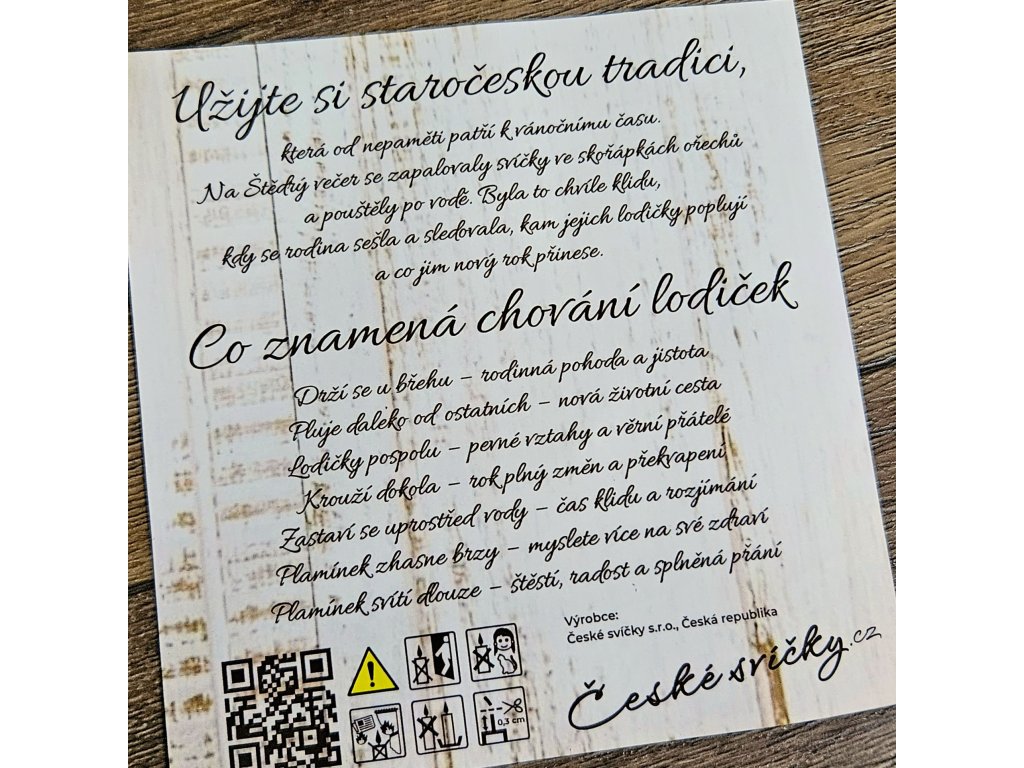 Užijte si staročeskou tradici,
která od nepaměti patří k vánočnímu času.
Na Štědrý večer se zapalovaly svíčky ve skořápkách ořechů
a pouštěly po vodě. Byla to chvíle klidu,
kdy se rodina sešla a sledovala, kam jejich lodičky poplují
a co jim nový rok přinese.
Co znamená chování lodiček
Drží se u břehu – rodinná pohoda a jistota
Pluje daleko od ostatních – nová životní cesta
Lodičky pospolu – pevné vztahy a věrní přátelé
Krouží dokola – rok plný změn a překvapení
Zastaví se uprostřed vody – čas klidu a rozjímání
Plamínek zhasne brzy – myslete více na své zdraví
Plamínek svítí dlouze – štěstí, radost a splněná přání
Výrobce:
České svíčky s.r.o., Česká republika
České svíčky.cz
0,3 cm